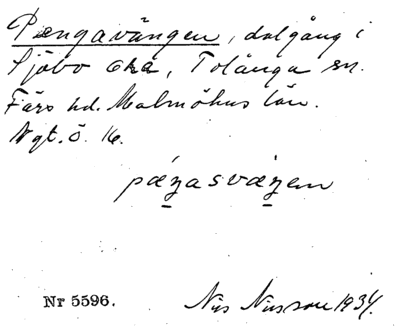 Pengavången, dalgång i
Sjöbo ora, Tolånga sn.
Färs hd. Malmöhus län.
Vgt. Ö. 16.
pæŋasvæŋem
Nr 5596.
Nils Nilsson 1934.